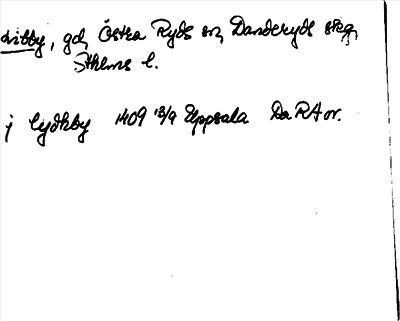 Litby, gd, Östra Ryds sn, Danderyds skg,
Sthlms l.
j lydhby 1409 13/9 Uppsala Da RA or.